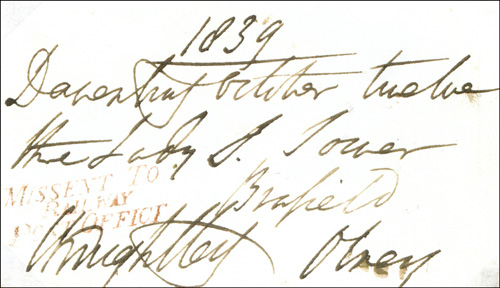 1839
Daventry October twelve
the Lady S. Tower
Brafield
MISSENT TO
RAILWAY
POST OFFICE
CKnightley Olney